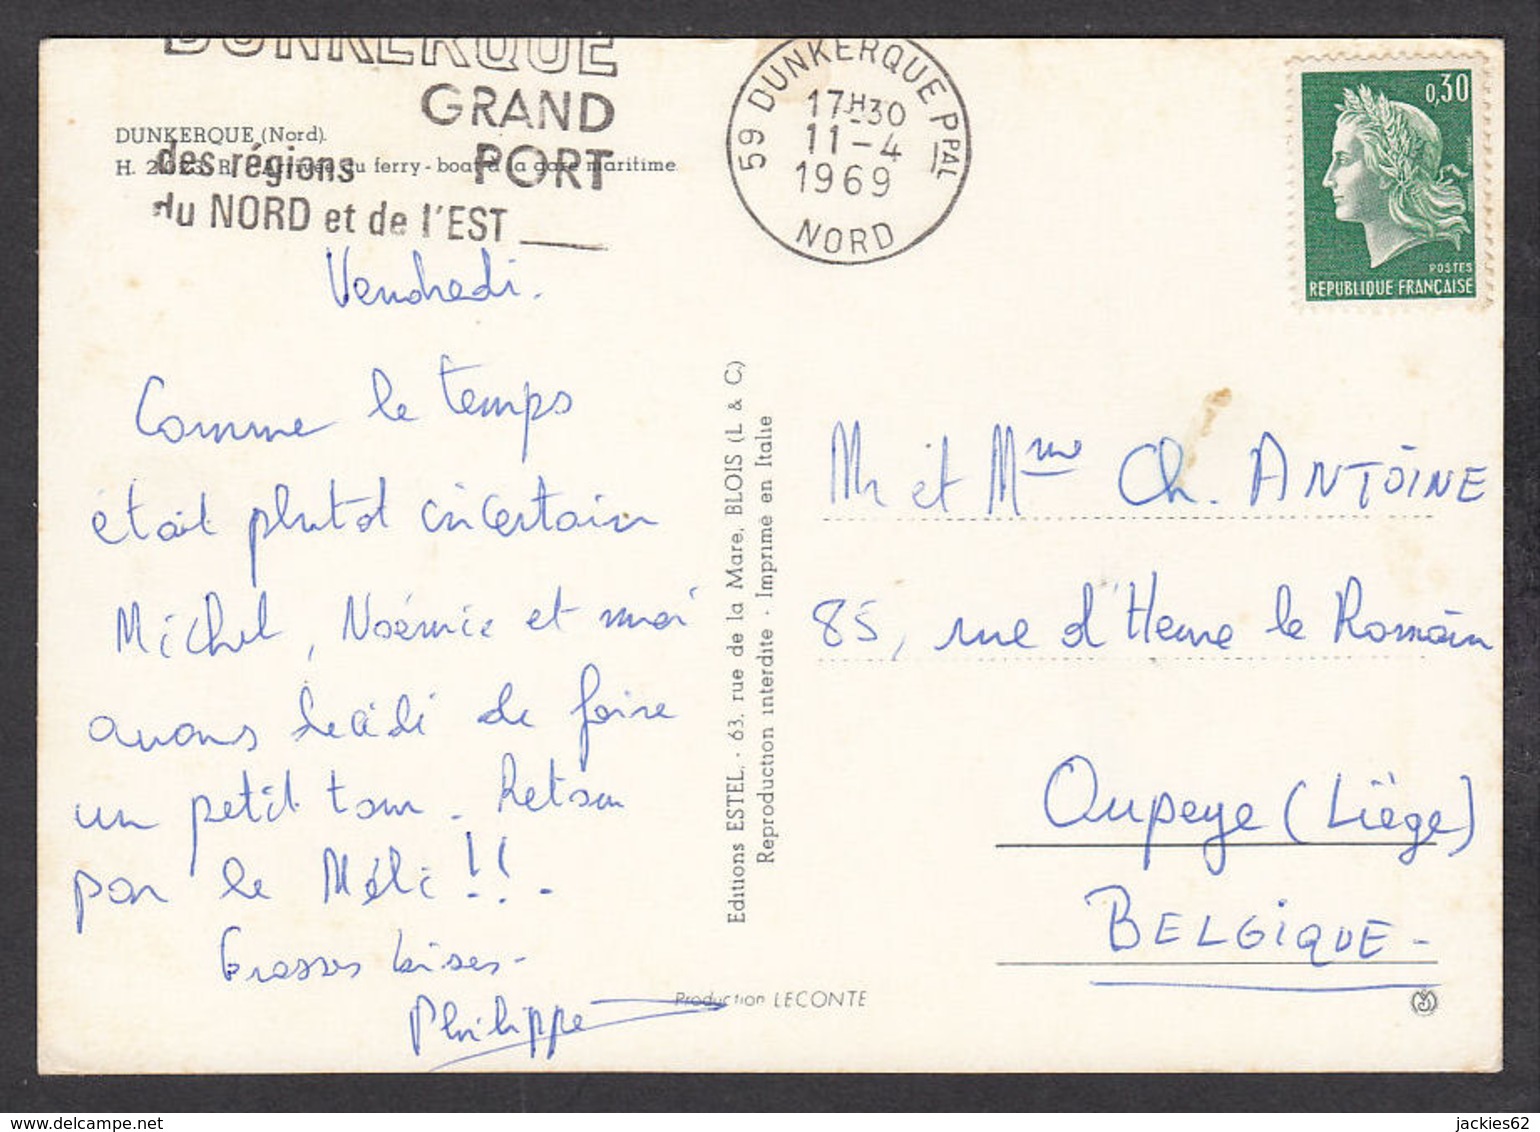 DUNKERQUE
GRAND
PORT
des régions
du NORD et de l'EST
59 DUNKERQUE PPAL
17H30
11-4
1969
NORD
0,30
POSTES
REPUBLIQUE FRANÇAISE
DUNKERQUE (Nord).
ferry-boat à la gare maritime
Vendredi.
Comme le temps
était plutôt incertain
Michel, Noémie et moi
avons décidé de faire
un petit tour. Retour
par le Méli !!.
Grosses bises -
Philippe
Editions ESTEL. - 63, rue de la Mare, BLOIS (L & C)
Reproduction interdite - Imprime en Italie
Mr et Mme Ch. ANTOINE
85, rue d'Herve le Romain
Oupeye (Liège)
BELGIQUE -
Production LECONTE
jackies62